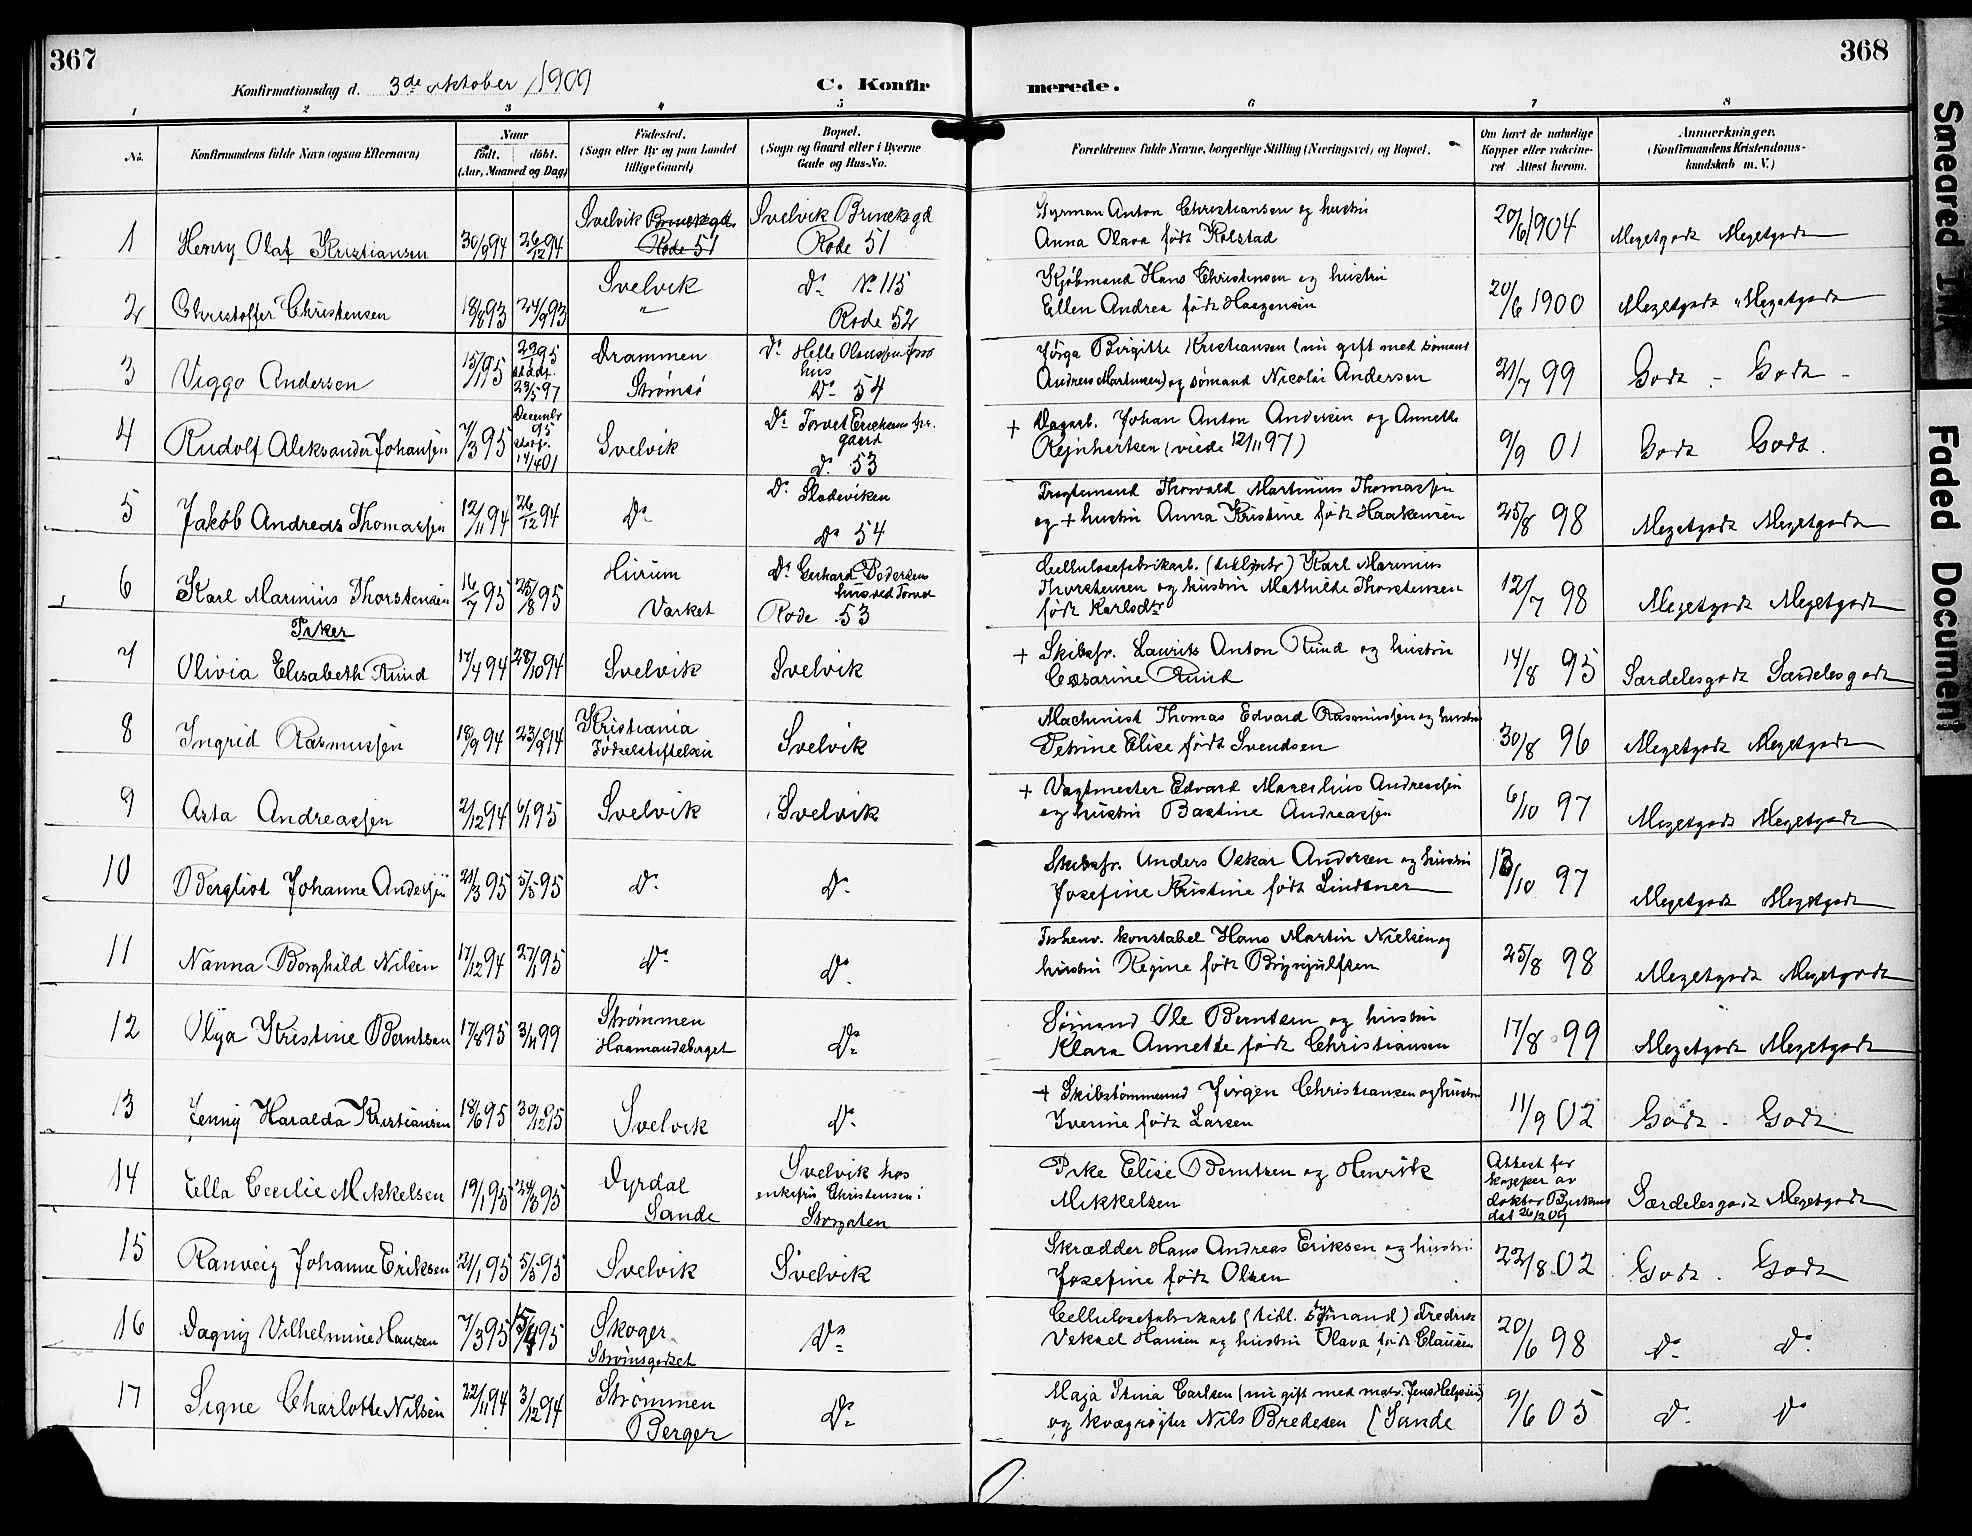 367
368
Konfirmationsdag d. 3de oktober 1909
C. Konfirmerede.
1 2 3 4 5 6 7 8
No.
Konfirmandens fulde Navn (ogsaa Efternavn)
Naar
født. døbt.
(Aar, Maaned og Dag)
Fødested.
(Sogn eller By og paa Landet
tillige Gaard)
Bopæl.
(Sogn og Gaard eller i Byerne
Gade og Hus-No.
Forældrenes fulde Navne, borgerlige Stilling (Næringsvei) og Bopæl.
Om havt de naturlige
Kopper eller vakcine-
ret Attest herom.
Anmærkninger.
(Konfirmandens Kristendoms-
kundskab m. V.)
1 Henry Olaf Kristiansen 30/9 94 26/12 94 Svelvik Rode 51 Svelvik Rode 51
Styrman Anton Christiansen og hustru
Anna Olava født Kolstad
20/6 1904 Megetgodt Megetgodt
2 Christoffer Christensen 18/8 93 24/9 93 Svelvik " Do No 115
Rode 52
Kjøbmand Hans Christensen og hustru
Ellen Andrea født Haagensen
20/6 1900 Megetgodt Megetgodt
3 Viggo Andersen 15/1 95 23/5 97 Drammen
Strømsø
Do Helle hus
Do 54
Birgitte Kristiansen (nu gift med sømand
Andreas Martinsen) og sømand Nicolai Andersen
21/7 99 Godt - Godt -
4 Rudolf Aleksander Johansen 7/3 95 December
95
14/4 01 Svelvik
Do Torvet gaard
Do 53
+ Dagarb. Johan Anton Andersen og Annette
Rejnhertsen (viede 12/11 97)
9/9 01 Godt Godt.
5 Jakob Andreas Thomassen 12/11 94 26/12 94 Do
Do
Do 54
Fragtemand Thorvald Martinius Thomassen
og + hustru Anna Kristine født Haakensen
25/8 98 Megetgodt Megetgodt
6 Karl Marinius Thorstensen 16/7 95 25/8 95 Hurum
Varket
Do Gerhard Pedersens
hus ved Torvet
Rode 53
Cellulosefabrikarb. Karl Marinius
Thorstensen og hustru Mathilde Thorstensen
født Karlsdtr
12/7 98 Megetgodt Megetgodt
Piker
7 Olivia Elisabeth Ruud 17/4 94 28/10 94 Svelvik Svelvik
+ Skibsfr. Laurits Anton Ruud og hustru
Cesarine Ruud
14/8 95 Særdelesgodt Særdelesgodt
8 Ingrid Rasmussen 18/9 94 23/9 94 Kristiania
Fødselstiftelsen
Svelvik
Machinist Thomas Edvard Rasmussen og hustru
Petrine Elise født Svendsen
30/8 96 Megetgodt Megetgodt
9 Asta Andreassen 2/12 94 6/1 95 Svelvik Svelvik
+ Vagtmester Edvard Marcelius Andreassen
og hustru Bastine Andreassen
6/10 97 Megetgodt Megetgodt
10 Bergliot Johanne Andersen 21/3 95 5/5 95 Do Do
Skibsfr. Anders Oskar Andersen og hustru
Josefine Kristine født Lindtner
13/10 97 Megetgodt Megetgodt
11 Nanna Borghild Nilsen 17/12 94 27/1 95 Do Do
konstabel Hans Martin Nielsen og
hustru Regine født Brynjulfsen
25/8 98 Megetgodt Megetgodt
12 Olga Kristine Berntsen 17/8 95 3/4 99 Strømmen
Haamandsberget
Do
Sømand Ole Berntsen og hustru
Klara Annette født Christiansen
17/8 99 Megetgodt Megetgodt
13 Jenny Haralda Kristiansen 18/6 95 30/12 95 Svelvik Do
+ Skibstømmermand Jørgen Christiansen og hustru
Iverine født Larsen
11/9 02 Godt - Godt
14 Ella Cecilie Mikkelsen 19/1 95 24/3 95 Dyrdal
Sande
Svelvik hos
enkefru Christensen i
Storgaten
Pike Elise Berntsen og Henrik
Mikkelsen
Attest for
kopper av
doktor
Særdelesgodt Megetgodt
15 Ranveig Johanne Eriksen 21/1 95 5/5 95 Svelvik Svelvik
Skrædder Hans Andreas Eriksen og hustru
Josefine født Olsen
22/8 02 Godt. Godt
16 Dagny Vilhelmine Hansen 7/3 95 15/4 95 Skoger
Strømsgodset
Do
Cellulosefabrikarb (tidl. styrmand) Fredrik
Veksel Hansen og hustru Olava født Clausen
20/6 98 Do Do
17 Signe Charlotte Nilsen 22/11 94 3/12 94 Strømmen
Berger
Do
Maja Stina Carlsen (nu gift med matr. Jens Helgesen)
og kvægrøgter Nils Bredesen [Sande
9/6 05 Do Do
Smeared Ink
Faded Document